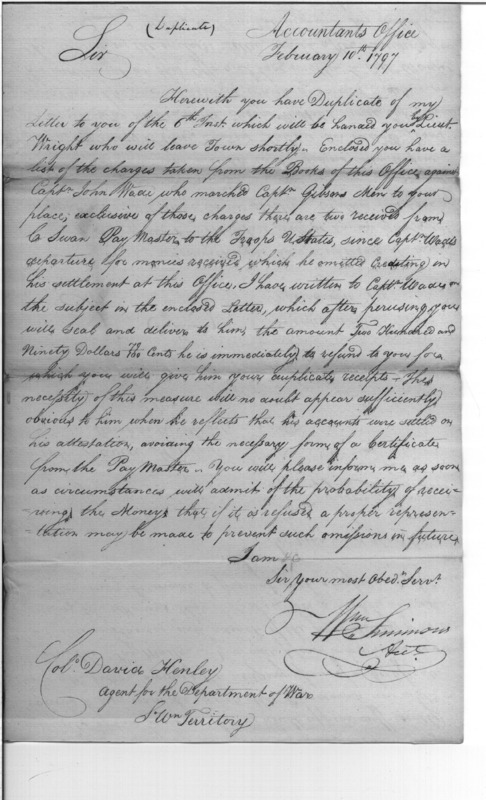 (Duplicate)
Accountants Office
February 10th. 1797
Sir
Herewith you have Duplicate of my
Letter to you of the 6th Inst. which will be handed you by Lieut.
Wright who will leave Town shortly.. Enclosed you have a
list of the charges taken from the Books of this Office, against
Captn. John Wade who marched Captn. Gibsons Men to your
place; exclusive of those charges there are two received from
C Swan Pay Master to the Troops U States, since Captn. Wade's
departure for monies received which he omitted Crediting in
his settlement at this Office. I have written to Captn. Wade on
the subject in the enclosed Letter, which after perusing you
will Seal and deliver to him, the amount Two Hundred and
Ninety Dollars /100 Cents he is immediately to refund to you for
which you will give him your duplicate receipts - The
necessity of this measure will no doubt appear sufficiently
obvious to him when he reflects that his accounts were settled on
his attestation, avoiding the necessary form of a Certificate
from the Pay Master.. You will please inform me as soon
as circumstances will admit of the probability of recei-
-ving the Money, that if it is refused a proper represen-
-tation may be made to prevent such omissions in future
I am
Sir Your most Obedt. Servt.
Wm Simmons
Acct.
Colo. David Henley
Agent for the Department of War
S. Wn Territory